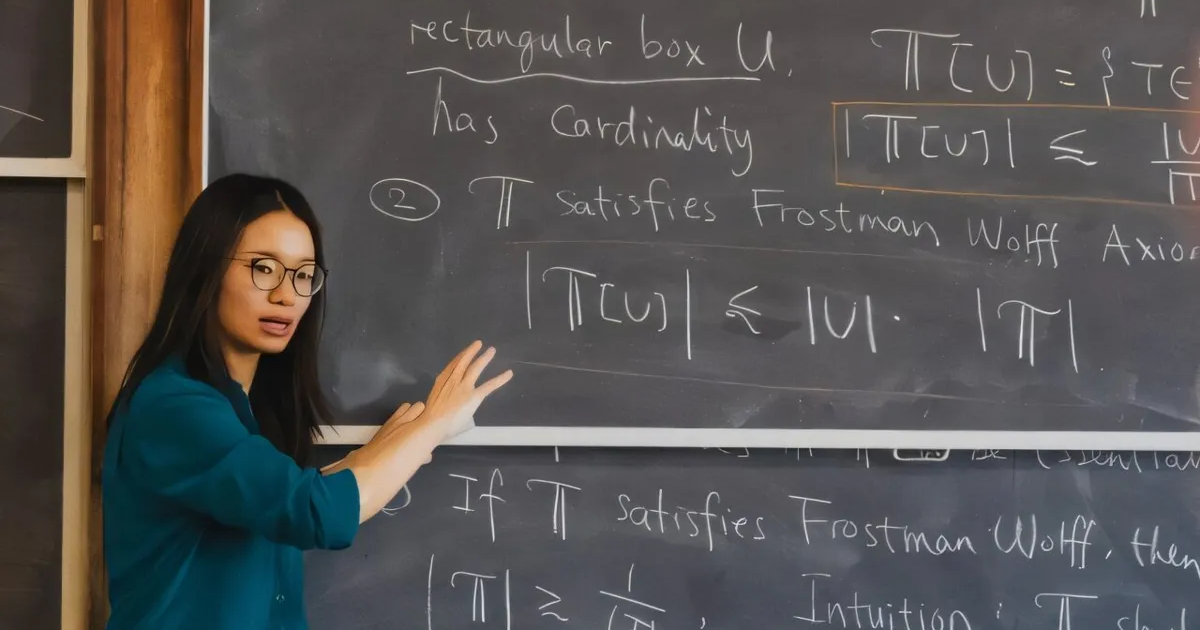 rectangular box U.
has Cardinality
𝕋[U] = { T ∈
|𝕋[U]| ≲ |U
② 𝕋 satisfies Frostman Wolff
|𝕋[U]| ≲ |U|· |𝕋|.
If 𝕋 satisfies Frostman Wolff, then
|𝕋| ≳ 1
Intuition : 𝕋